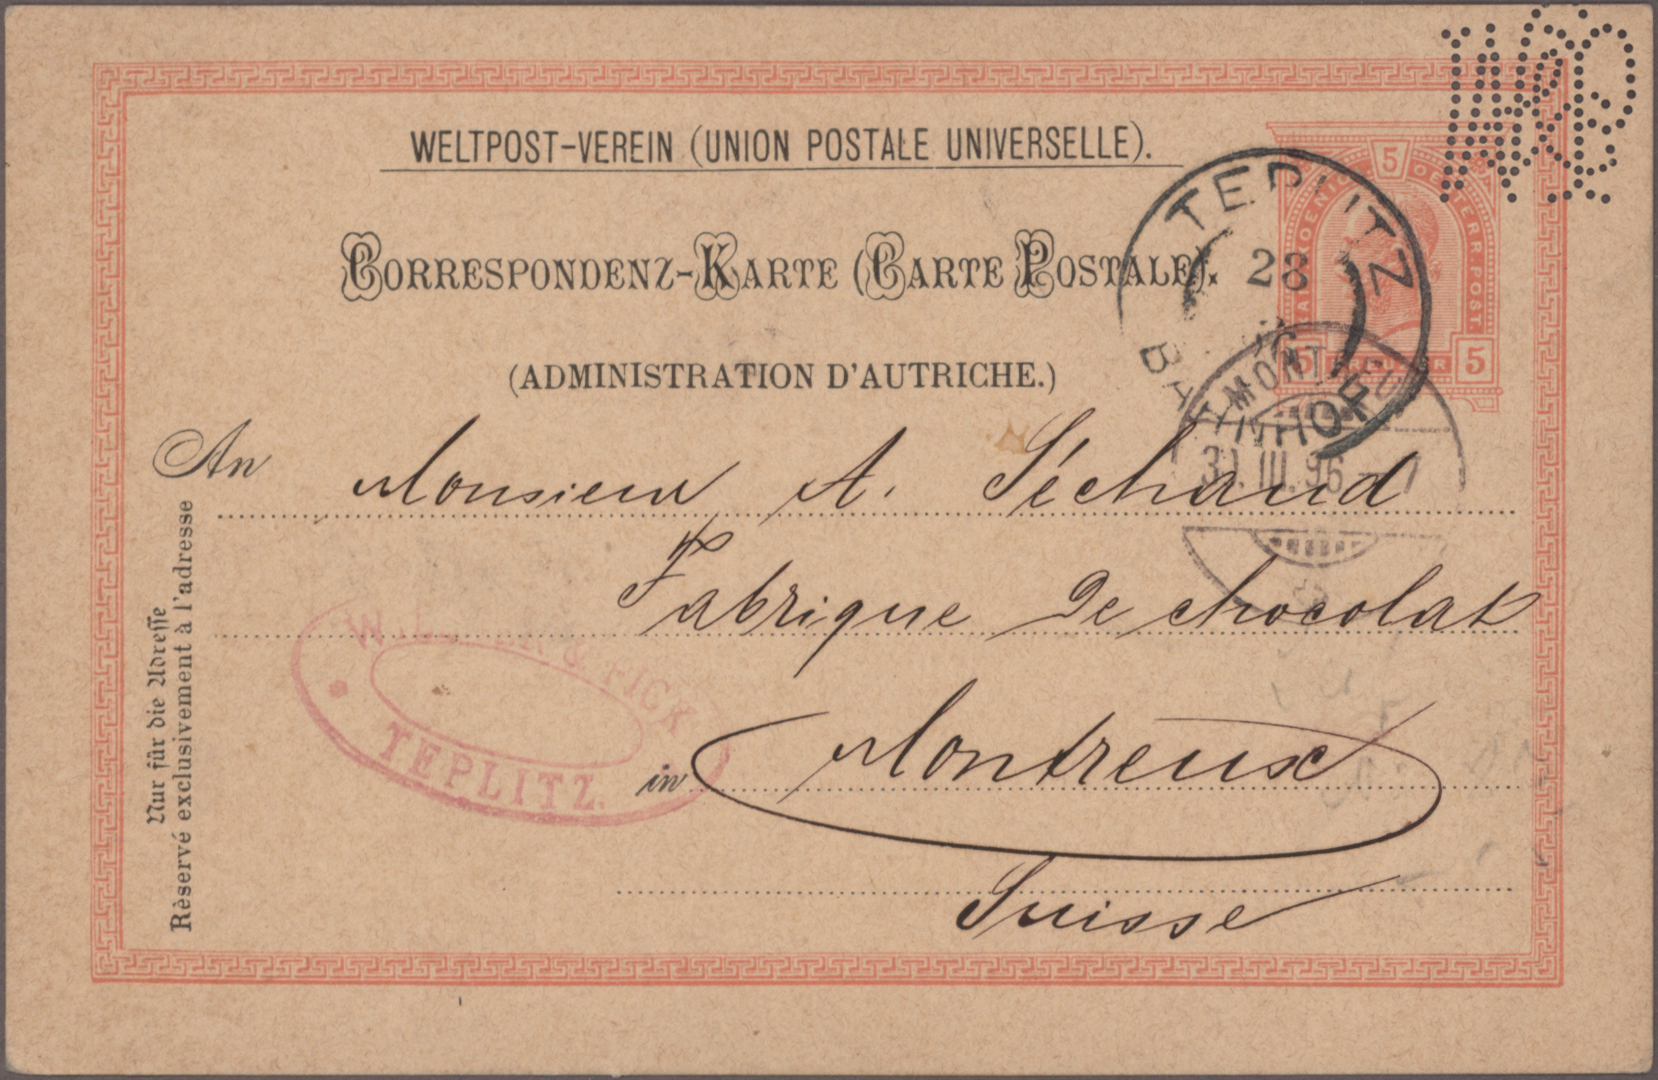 WELTPOST-VEREIN (UNION POSTALE UNIVERSELLE).
CORRESPONDENZ-KARTE (CARTE POSTALE).
(ADMINISTRATION D'AUTRICHE.)
5
5 5
TEPLITZ
28
BAHNHOF
MONTREUX
31.III.96
An Monsieur A. Séchaud
Fabrique de chocolat
in Montreux
Suisse
& FICK
TEPLITZ.
Nur für die Adresse
Rèservé exclusivement à l'adresse